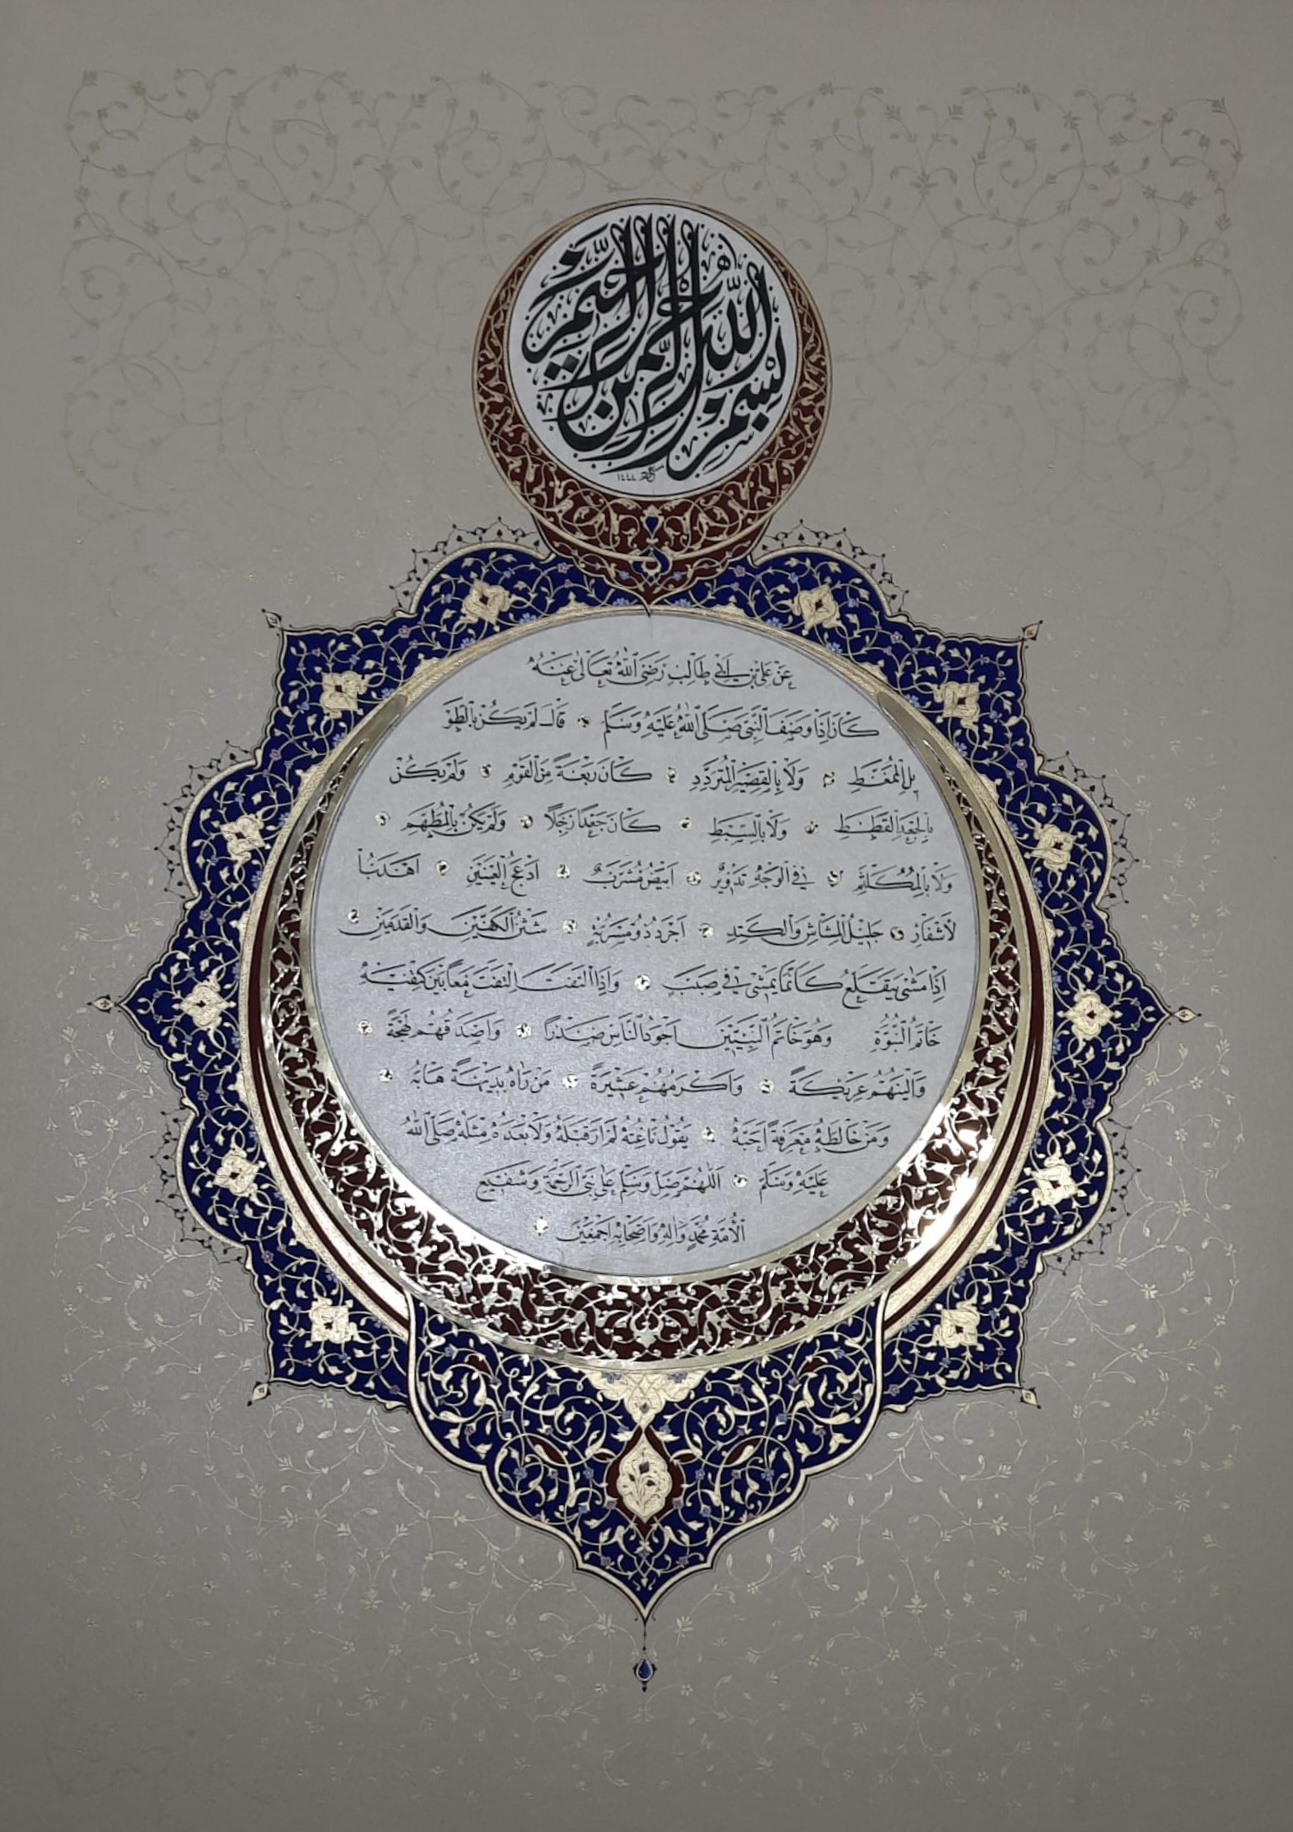 بسم الله الرحمن الرحيم
١٤٤٤
عن علي بن ابي طالب رضي الله تعالى عنه
كان اذا وصف النبي صلى الله عليه وسلم قال لم يكن بالطو
يل الممغط ولا بالقصير المتردد كان ربعة من القوم ولم يكن
بالجعد القطط ولا بالسبط كان جعدا رجلا ولم يكن بالمطهم
ولا بالمكلثم في الوجه تدوير ابيض مشرب ادعج العينين اهدب ا
لاشفار جليل المشاش والكتد اجرد ذو مسربة شثن الكفين والقدمين
اذا مشى يتقلع كانما يمشي في صبب واذا التفت التفت معا بين كتفيه
خاتم النبوة وهو خاتم النبيين اجود الناس صدرا واصدقهم لهجة
والينهم عريكة واكرمهم عشيرة من رآه بديهة هابه
ومن خالطه معرفة احبه يقول ناعته لم ار قبله ولا بعده مثله صلى الله
عليه وسلم اللهم صل وسلم على نبي الرحمة وشفيع
الأمة محمد واله واصحابه اجمعين